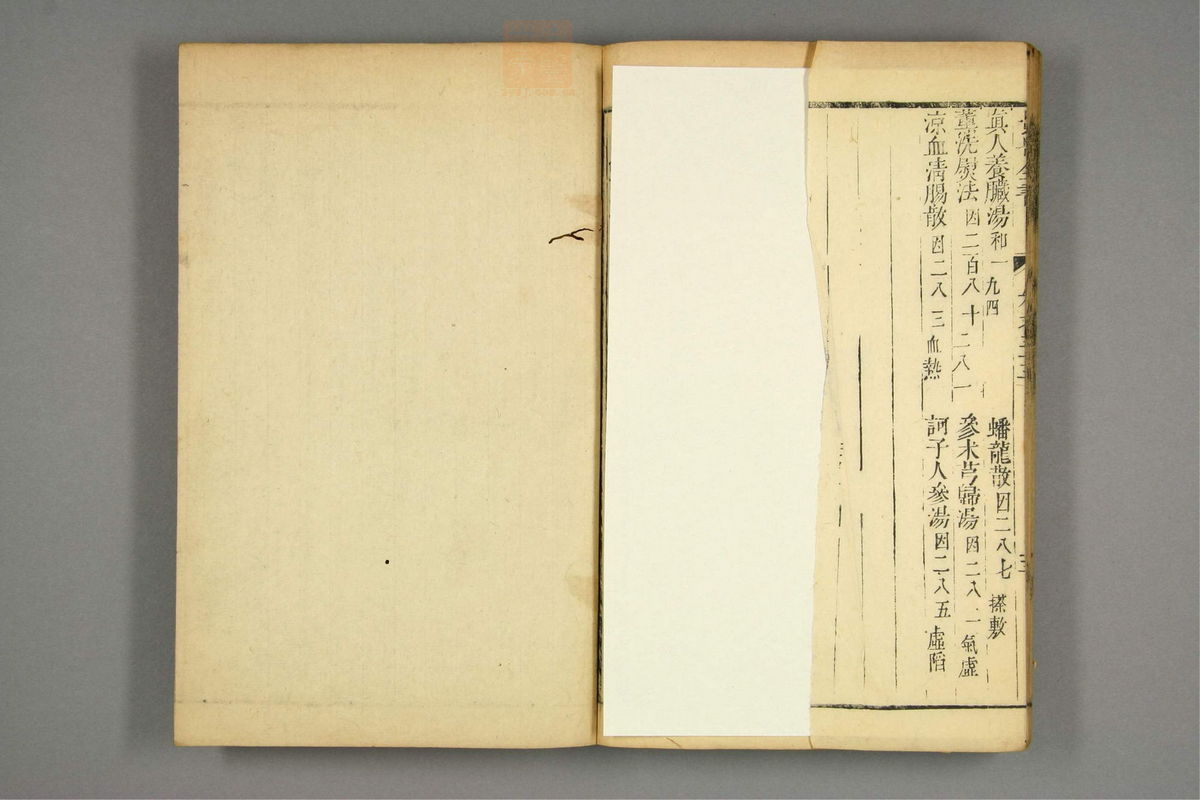 眞人養臟湯和一九四
蟠龍散因二八七 搽敷
薰洗熨法因二百八十二八一
參朮芎歸湯因二八一氣虛
凉血淸腸散因二八三血熱
訶子人參湯因二八五虛陷